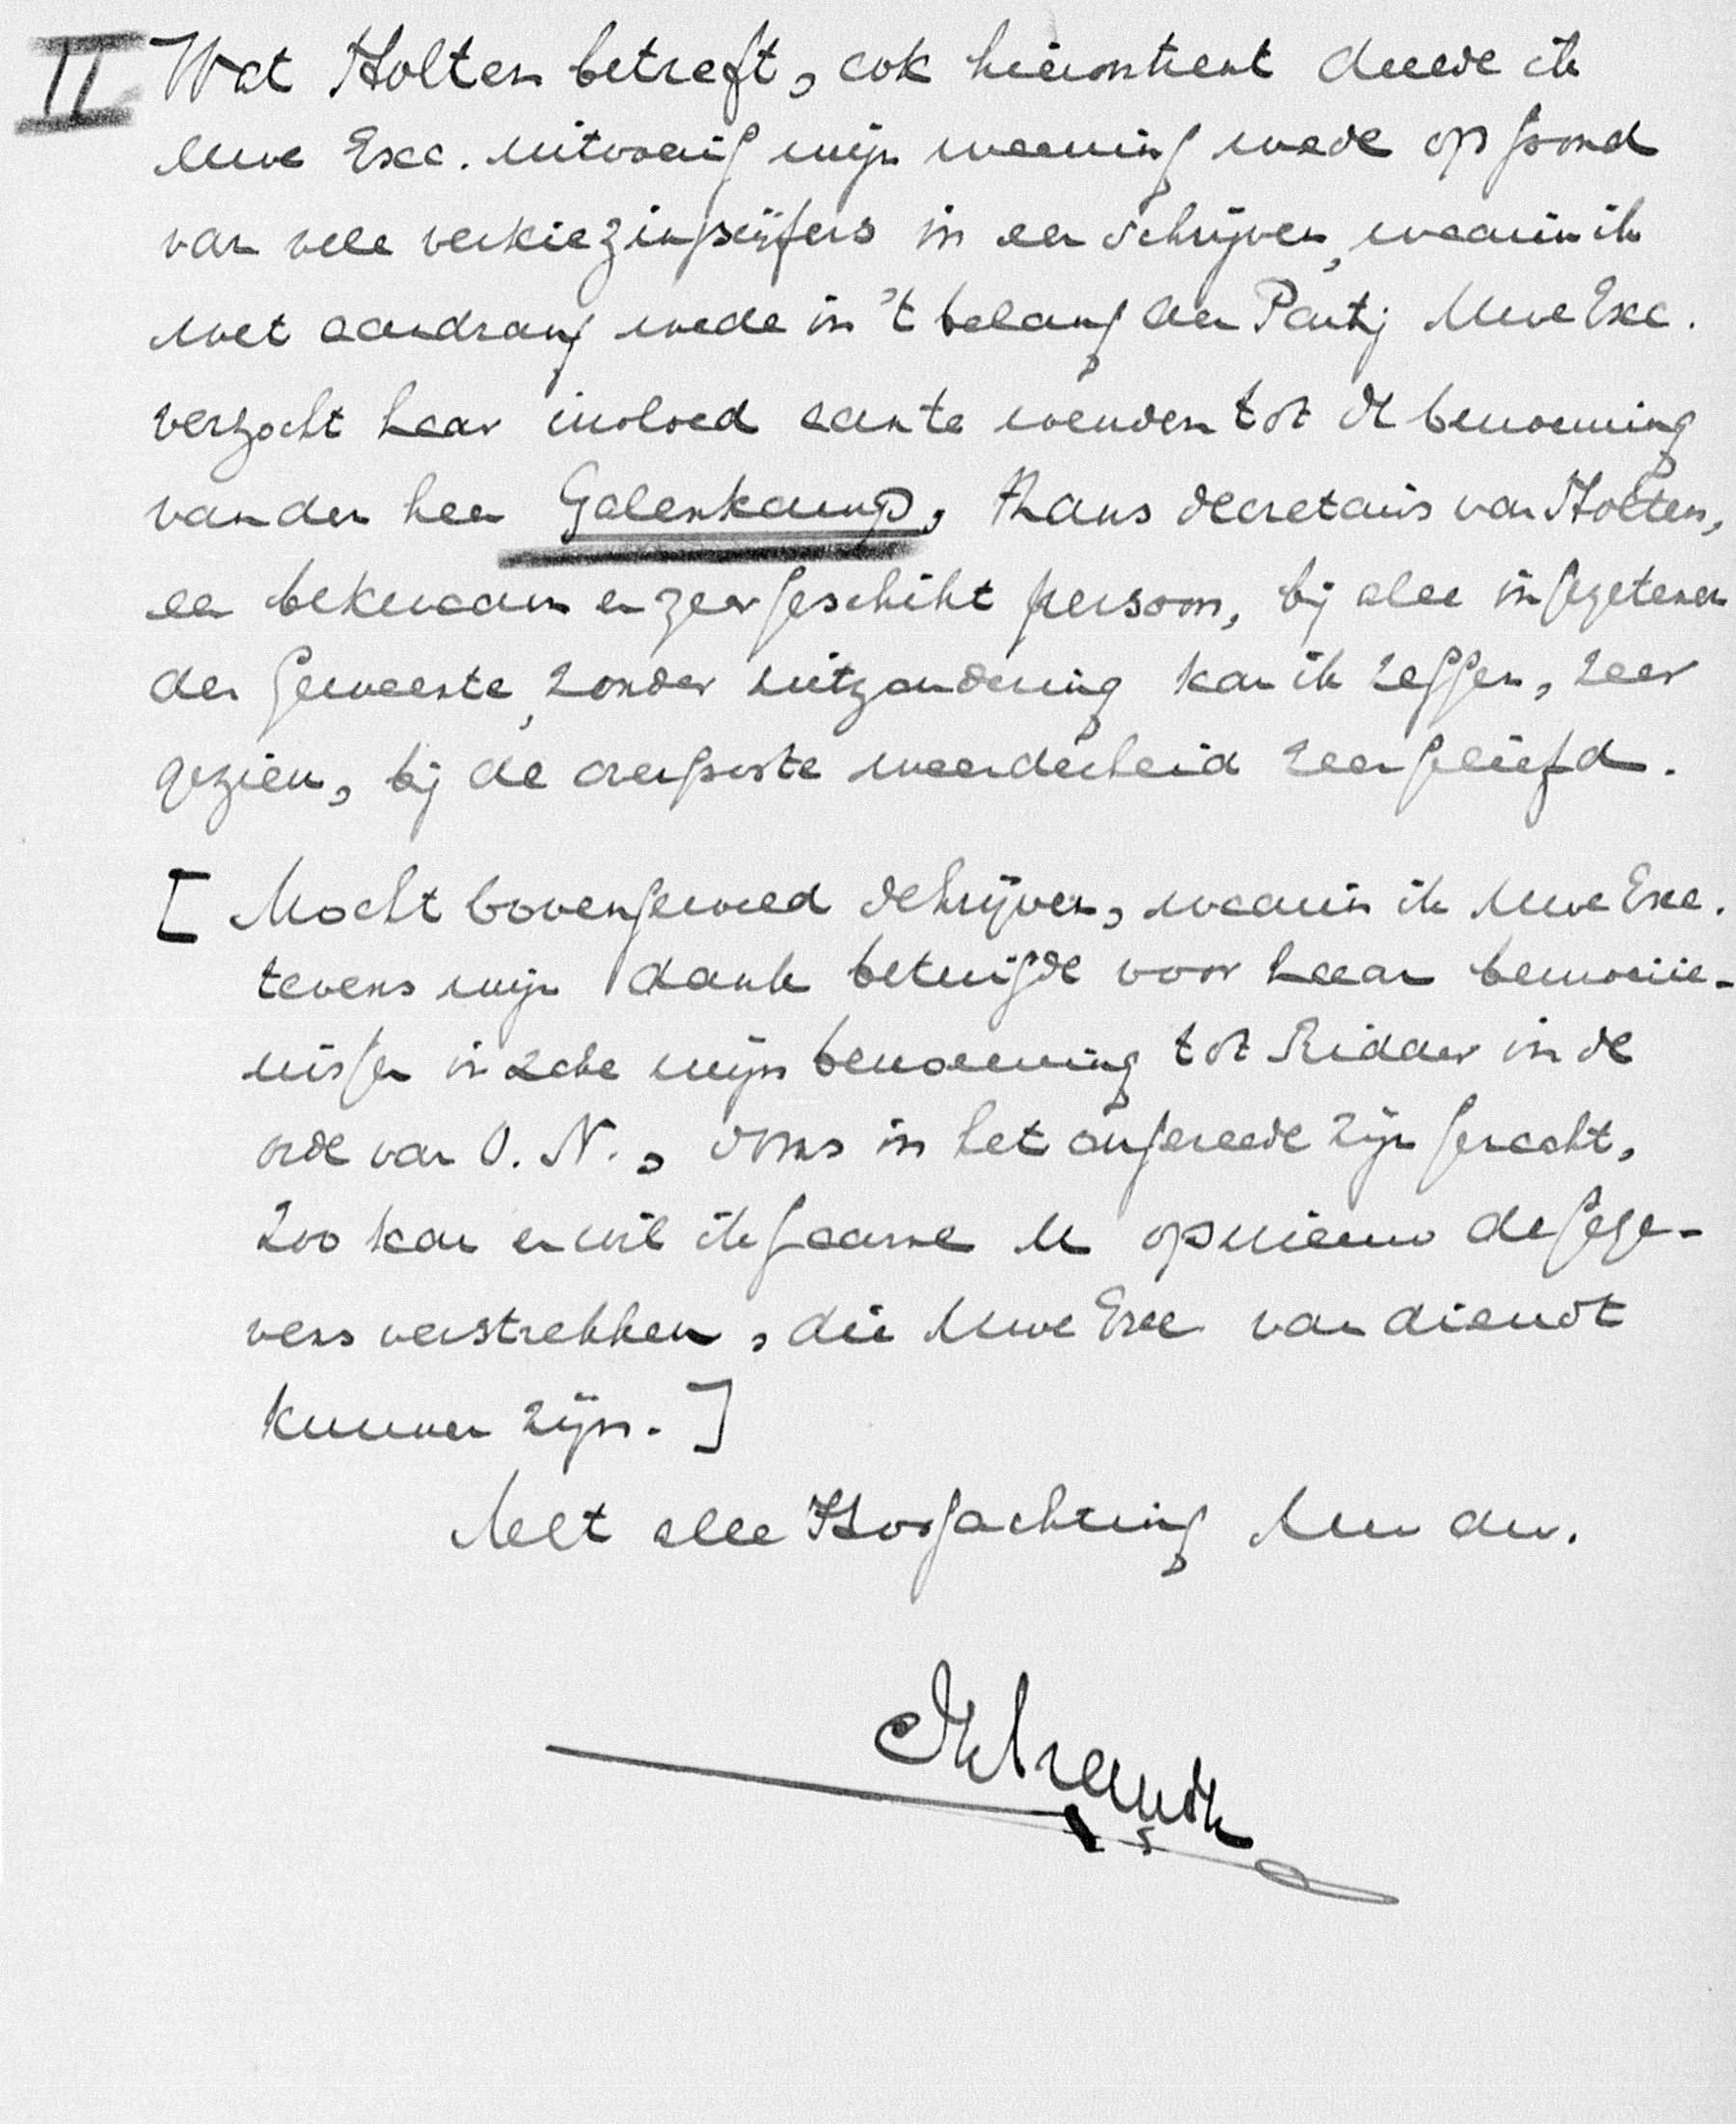 II Wat Holten betreft, ook hieromtrent deelde ik
Uwe Exc. uitvoerig mijn meening mede op grond
van vele verkiezingscijfers in een schrijven, waarin ik
met aandrang mede in 't belang der Partij Uwe Exc.
verzocht haar invloed aan te wenden tot de benoeming
van den heer Galenkamp, thans secretaris van Holten,
een bekwaam en zeer geschikt persoon, bij alle ingezetenen
der Gemeente, zonder uitzondering kan ik zeggen, zeer
gezien, bij de overgroote meerderheid zeer geliefd.
[ Mocht bovengemeed schrijven, waarin ik Uwe Exc.
tevens mijn dank betuigde voor haar bemoeiie-
nissen in zake mijn benoeming tot Ridder in de
orde van O. N., soms in het ongereede zijn geraakt,
zoo kan en wil ik gaarne U opnieuw de gege-
vens verstrekken, die Uwe Exc van dienst
kunnen zijn. ]
Met alle Hoogachting Uw dw.